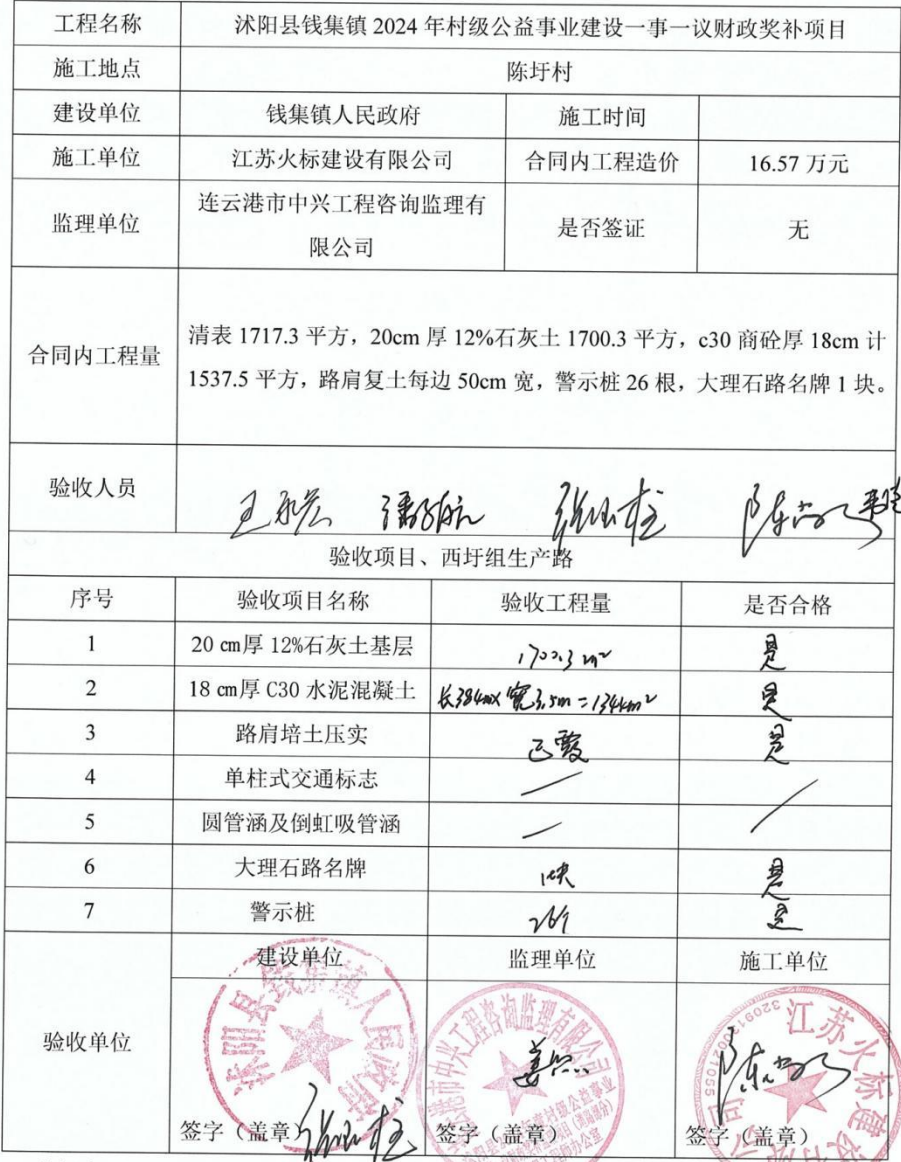 工程名称 沭阳县钱集镇 2024 年村级公益事业建设一事一议财政奖补项目
施工地点 陈圩村
建设单位 钱集镇人民政府 施工时间
施工单位 江苏火标建设有限公司 合同内工程造价 16.57 万元
监理单位 连云港市中兴工程咨询监理有
限公司 是否签证 无
合同内工程量 清表 1717.3 平方，20cm 厚 12%石灰土 1700.3 平方，c30 商砼厚 18cm 计
1537.5 平方，路肩复土每边 50cm 宽，警示桩 26 根，大理石路名牌 1 块。
验收人员
验收项目、西圩组生产路
序号 验收项目名称 验收工程量 是否合格
1 20 cm厚 12%石灰土基层 1700.3 m² 是
2 18 cm厚 C30 水泥混凝土 长384m×宽3.5m=1344m² 是
3 路肩培土压实 已覆 是
4 单柱式交通标志 — ／
5 圆管涵及倒虹吸管涵 —
6 大理石路名牌 1块 是
7 警示桩 26个 是
验收单位 建设单位 监理单位 施工单位
沭阳县钱集镇人民政府
港市中兴工程咨询监理有限公司
江苏火标建设有
签字（盖章） 签字（盖章） 签字（盖章）